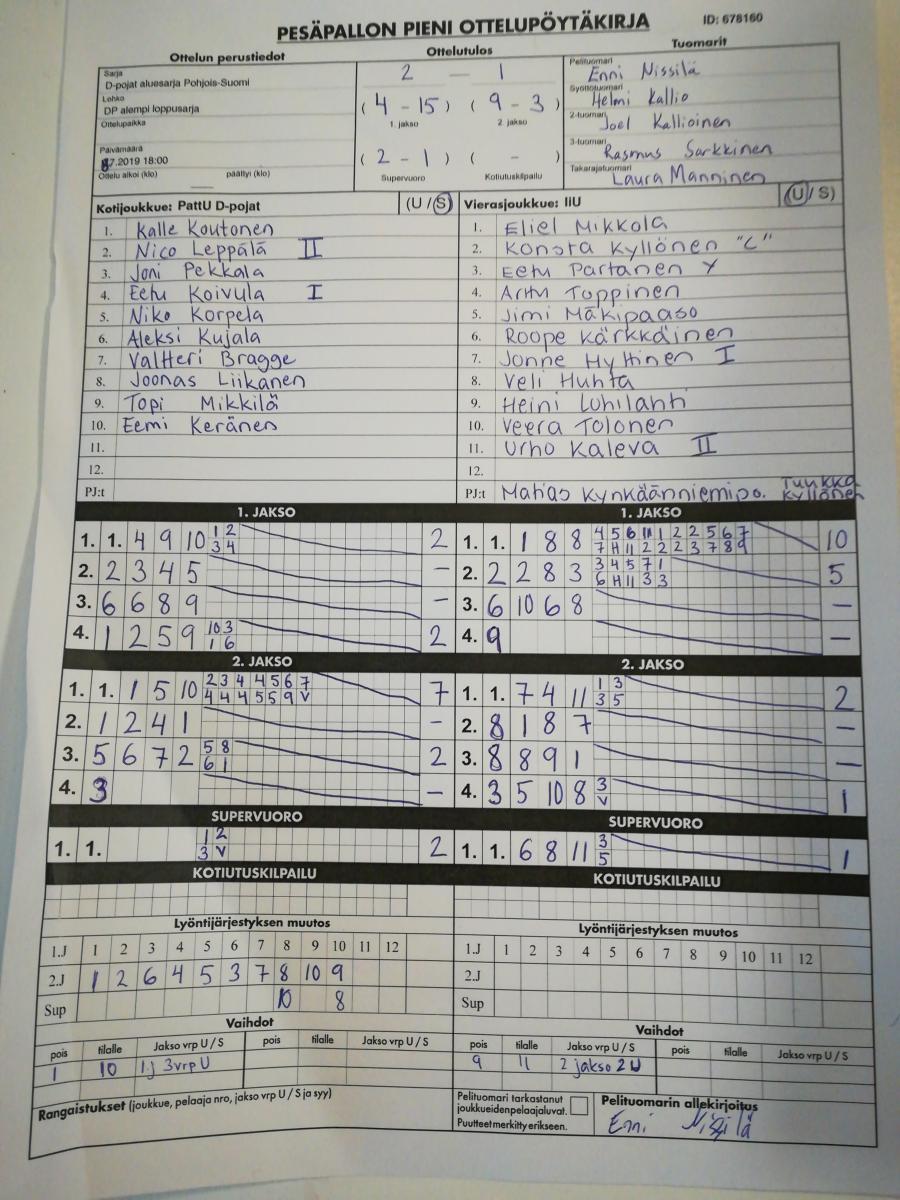 PESÄPALLON PIENI OTTELUPÖYTÄKIRJA
ID: 678160
Ottelun perustiedot
Sarja
D-pojat aluesarja Pohjois-Suomi
Lohko
DP alempi loppusarja
Ottelupaikka
Päivämäärä
.7.2019 18:00
Ottelu alkoi (klo) päättyi (klo)
Ottelutulos
2 — 1
( 4 - 15 ) ( 9 - 3 )
1. jakso 2. jakso
( 2 - 1 ) ( - )
Supervuoro Kotiutuskilpailu
Tuomarit
Pelituomari
Enni Nissilä
Syöttötuomari
Helmi Kallio
2-tuomari
Joel Kallioinen
3-tuomari
Rasmus Sarkkinen
Takarajatuomari
Laura Manninen
Kotijoukkue: PattU D-pojat (U / S)
1. Kalle Koutonen
2. Nico Leppälä II
3. Joni Pekkala
4. Eetu Koivula I
5. Niko Korpela
6. Aleksi Kujala
7. Valtteri Bragge
8. Joonas Liikanen
9. Topi Mikkilä
10. Eemi Keränen
11.
12.
PJ:t
Vierasjoukkue: IiU (U / S)
1. Eliel Mikkola
2. Konsta Kyllönen "C"
3. Eetu Partanen Y
4. Arttu Toppinen
5. Jimi Mäkipaaso
6. Roope Kärkkäinen
7. Jonne Hyttinen I
8. Veli Huhta
9. Heini Luhilahti
10. Veera Tolonen
11. Urho Kaleva II
12.
PJ:t Matias Kynkäänniemi po. Tuukka Kyllönen
1. JAKSO
1. 1. 4 9 10 1 2 2
3 4
2. 2 3 4 5 –
3. 6 6 8 9 –
4. 1 2 5 9 10 3 2
1 6
1. JAKSO
1. 1. 1 8 8 4 5 6 11 1 2 2 5 6 7 10
7 H 11 2 2 2 3 7 8 9
2. 2 2 8 3 3 4 5 7 1 5
6 H 11 3 3
3. 6 10 6 8 –
4. 9 –
2. JAKSO
1. 1. 1 5 10 2 3 4 4 5 6 7 7
4 4 4 5 5 9 V
2. 1 2 4 1 –
3. 5 6 7 2 5 8 2
6 1
4. 3 –
2. JAKSO
1. 1. 7 4 11 1 3 2
3 5
2. 8 1 8 7 –
3. 8 8 9 1 –
4. 3 5 10 8 3 1
V
SUPERVUORO
1. 1. 1 2 2
3 V
SUPERVUORO
1. 1. 6 8 11 3 1
5
KOTIUTUSKILPAILU
KOTIUTUSKILPAILU
Lyöntijärjestyksen muutos
1.J 1 2 3 4 5 6 7 8 9 10 11 12
2.J 1 2 6 4 5 3 7 8 10 9
Sup 10 8
Lyöntijärjestyksen muutos
1.J 1 2 3 4 5 6 7 8 9 10 11 12
2.J
Sup
Vaihdot
pois tilalle Jakso vrp U / S pois tilalle Jakso vrp U / S
1 10 1.j 3vrp U
Vaihdot
pois tilalle Jakso vrp U / S pois tilalle Jakso vrp U / S
9 11 2 jakso 2 U
Rangaistukset (joukkue, pelaaja nro, jakso vrp U / S ja syy)
Pelituomari tarkastanut
joukkueidenpelaajaluvat.
Puutteet merkitty erikseen.
Pelituomarin allekirjoitus
Enni Nissilä